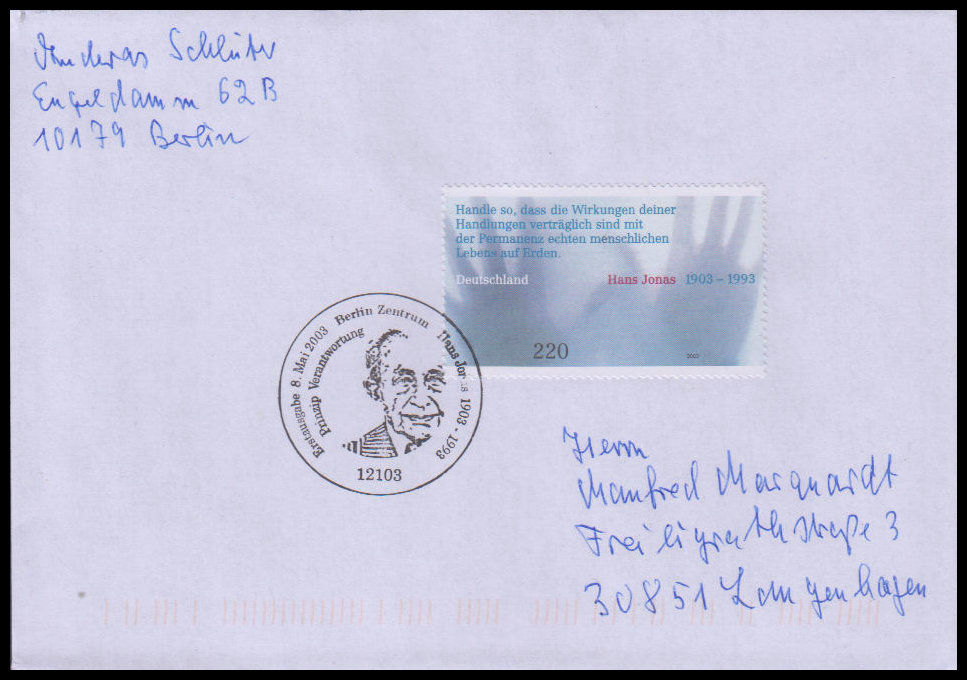 Andreas Schlüter
Engeldamm 62B
10179 Berlin
Handle so, dass die Wirkungen deiner
Handlungen verträglich sind mit
der Permanenz echten menschlichen
Lebens auf Erden.
Deutschland Hans Jonas 1903 – 1993
220 2003
Erstausgabe 8. Mai 2003 Berlin Zentrum Hans Jonas 1903 - 1993
Prinzip Verantwortung
12103
Herrn
Manfred Marquardt
Freiligrathstraße 3
30851 Langenhagen